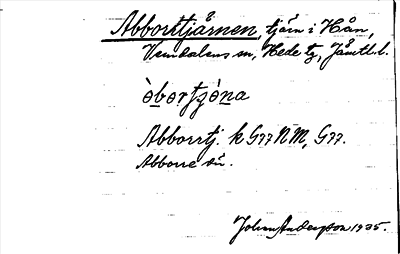 Abborrtjärnen, tjärn i Hån,
Vemdalens sn, Hede tg, Jämtl. l.
Abborrtj. k G77 NM, G77.
Abborre su.
Johan Andersson 1935.